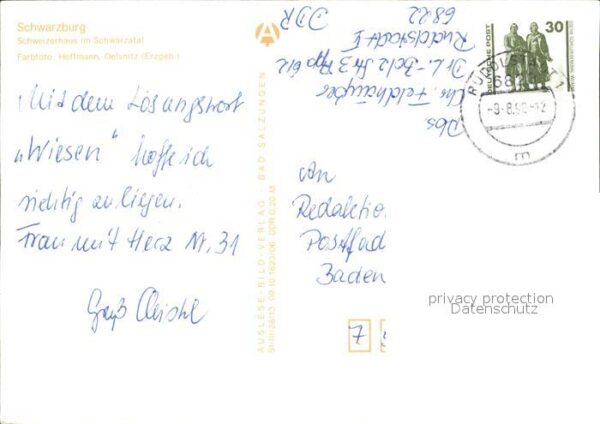 Schwarzburg
Schweizerhaus im Schwarzatal
Farbfoto: Hoffmann, Oelsnitz (Erzgeb.)
Mit dem Lösungswort
„Wiesen“ hoffe ich
richtig zu liegen.
Frau mit Herz Nr. 31
Gruß
AUSLESE-BILD-VERLAG BAD SALZUNGEN
DDR 0,20 M
Abs
Chr. Feldhäußer
Dr.-L.-Belz Str 3
Rudolstadt I
6822
DDR
DEUTSCHE POST
30
RUDOLSTADT 1
682
-9-8.90-12
m
An
Redaktio
Postfad
Baden
7
privacy protection
Datenschutz